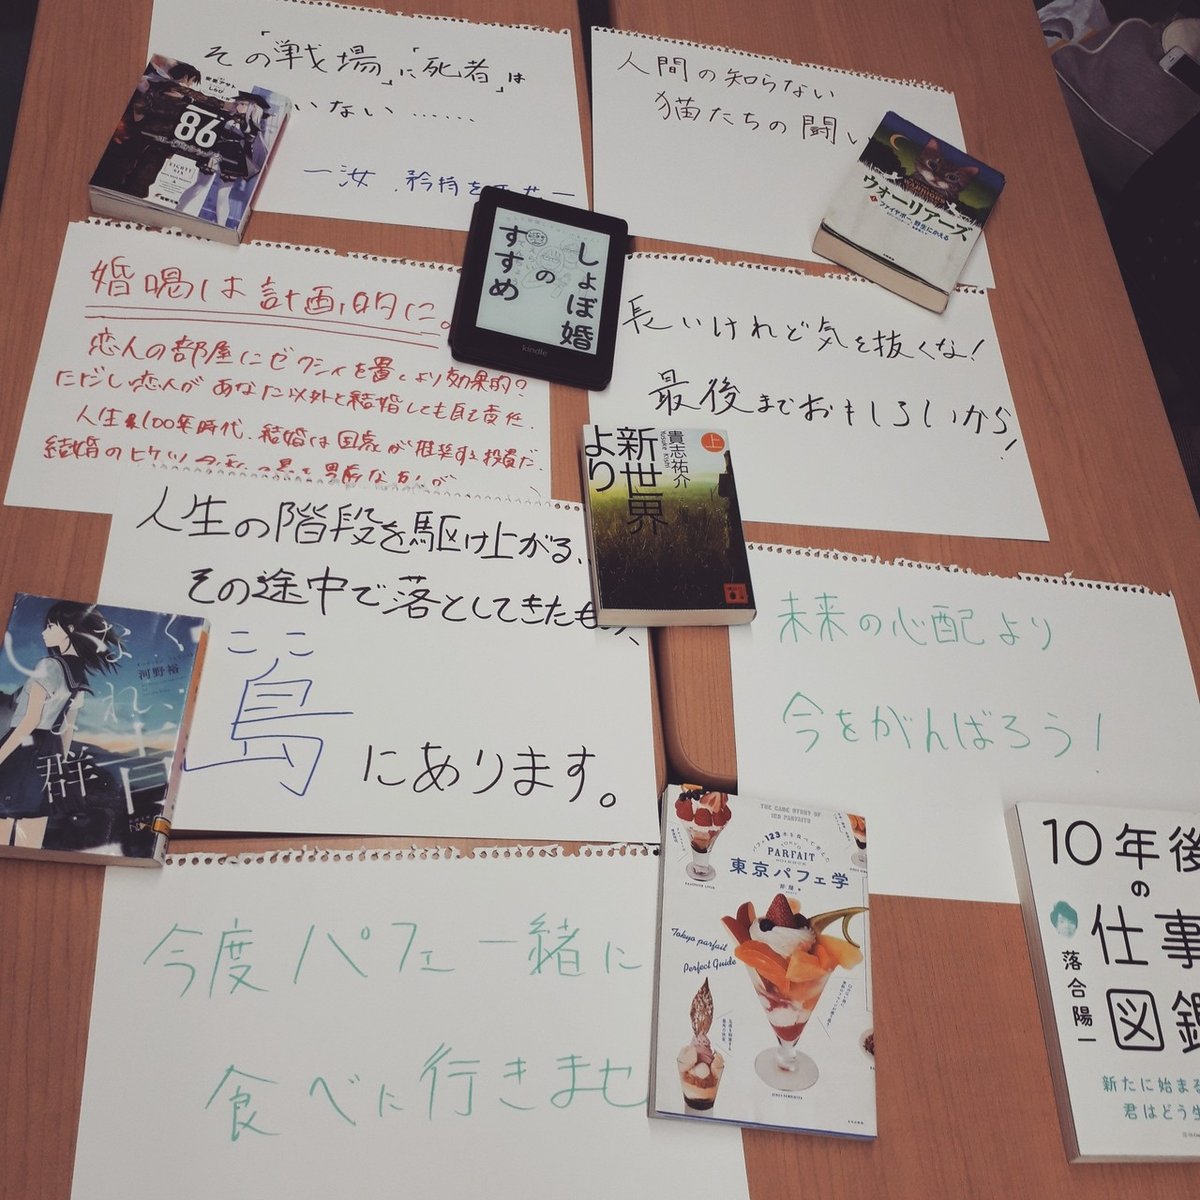 その「戦場」に「死者」は
いない……
安里アサト
しらび
86
EIGHTY
SIX
人間の知らない
猫たちの闘い
WARRIORS
ウォーリアーズ
ファイヤポー、野生にかえる
婚喝は計画的に。
恋人の部屋にゼクシィを置くより効果的?
ただし恋人があなた以外と結婚しても自己責任.
人生100年時代、結婚は国が推奨する投資だ.
結婚のヒケツ
しょぼ婚
の
すすめ
kindle
長いけれど気を抜くな!
最後までおもしろいから!
上
貴志祐介
Yusuke Kishi
新世界
より
人生の階段を駆け上がる、
その途中で落としてきたもの、
ここ
島
にあります。
河野裕
いなくなれ、
群青
未来の心配より
今をがんばろう!
今度パフェ一緒に
食べに行きませ
THE GAME STORY OF
ICE PARFAITS
PARFAIT
東京パフェ学
Tokyo parfait
Perfect Guide
10年後
の
仕事
図鑑
落合陽一
新たに始まる
君はどう生